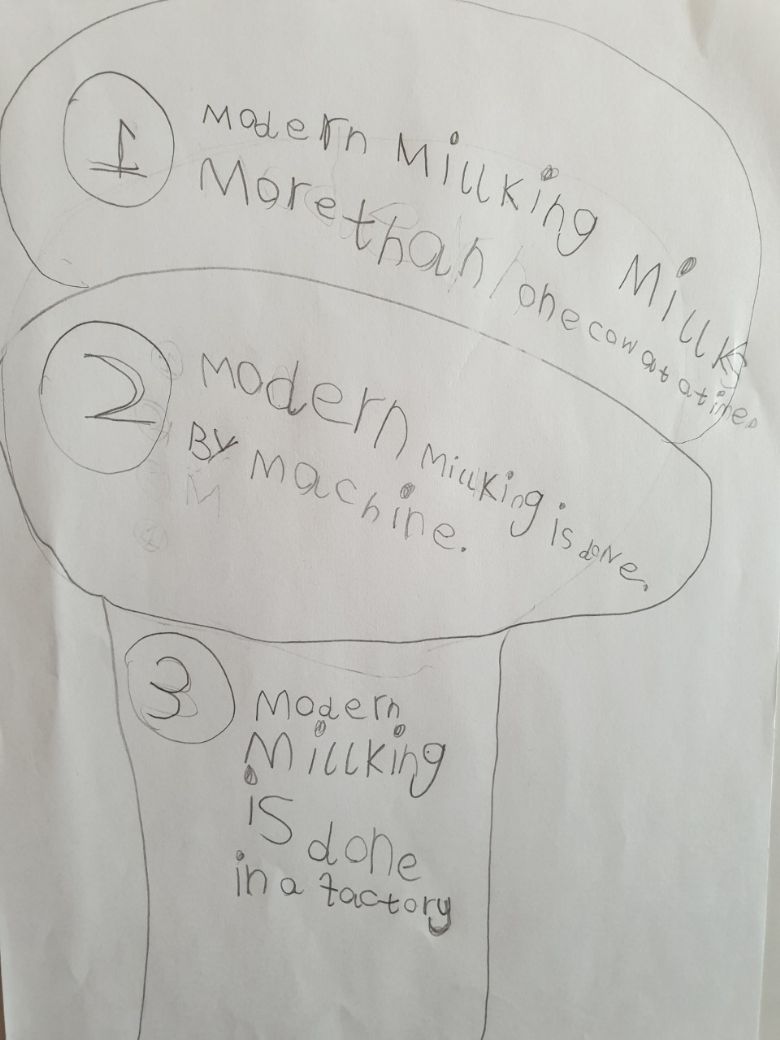 1
Modern Millking Millks
More than one cow at a time.
2
Modern Millking is done.
By machine.
M
3
Modern
Millking
is done
in a factory